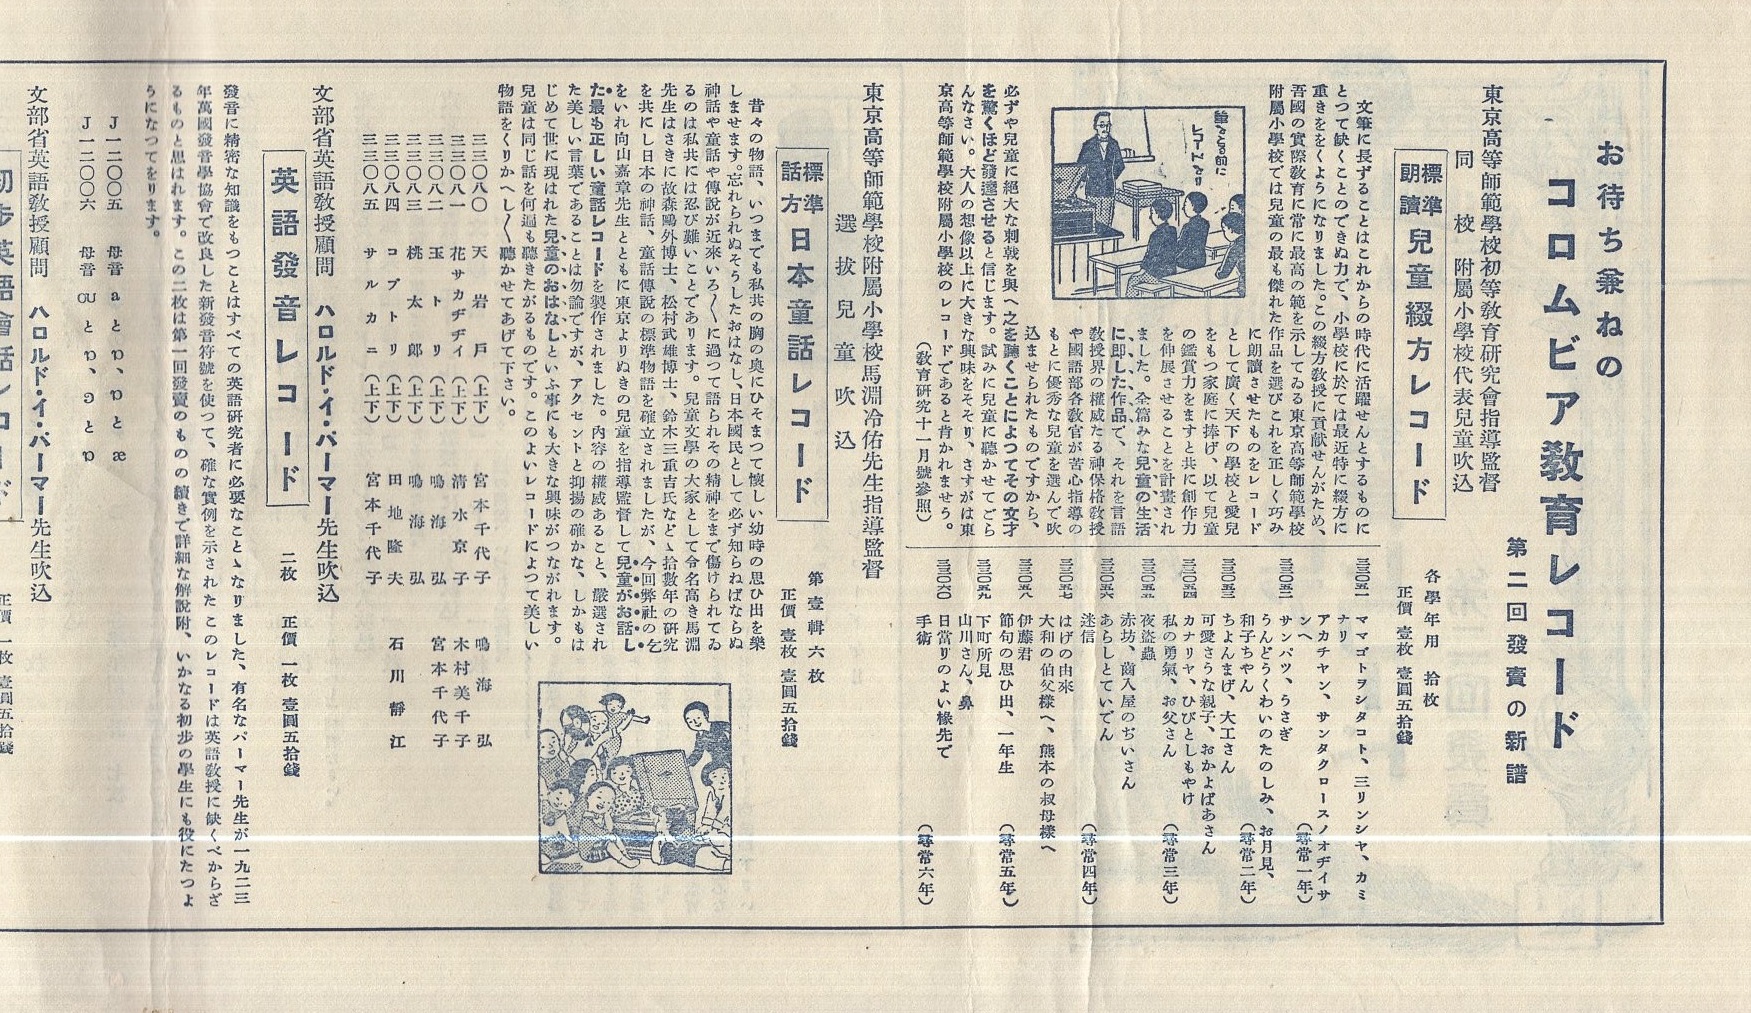 お待ち兼ねの
コロムビア教育レコード
第二回發賣の新譜
東京高等師範學校初等敎育研究會指導監督
同校 附屬小學校代表兒童吹込
標準朗讀 兒童綴方レコード
各學年用 拾枚
正價 壹枚 壹圓五拾錢
文筆に長ずることはこれからの時代に活躍せんとするものに
とつて缺くことのできぬ力で、小學校に於ては最近特に綴方に
重きををくようになりました。この綴方敎授に貢献せんがため、
吾國の實際敎育に常に最高の範を示してゐる東京高等師範學校
附屬小學校では兒童の最も傑れた作品を選びこれを正しく巧み
に朗讀させたものをレコード
として廣く天下の學校と愛兒
をもつ家庭に捧げ、以て兒童
の鑑賞力をますと共に創作力
を伸展させることを計畫され
ました。全篇みな兒童の生活
に即した作品で、それを言語
敎授界の權威たる神保格敎授
や國語部各敎官が苦心指導の
もとに優秀な兒童を選んで吹
込ませられたものですから、
必ずや兒童に絶大な刺戟を與へ之を聽くことによつてその文才
を驚くほど發達させると信じます。試みに兒童に聽かせてごら
んなさい。大人の想像以上に大きな興味をそそり、さすがは東
京高等師範學校附屬小學校のレコードであると肯かれませう。
(敎育研究十一月號參照)
筆をとる前に
レコードより
三三〇五一 ママゴトヲシタコト、三リンシヤ、カミ
ナリ
アカチヤン、サンタクロースノオヂイサ
ンヘ (尋常一年)
三三〇五二 サンパツ、うさぎ
うんどうくわいのたのしみ、お月見、
和子ちやん (尋常二年)
三三〇五三 ちよんまげ、大工さん
可愛さうな親子、おかよばあさん
三三〇五四 カナリヤ、ひびとしもやけ
私の勇氣、お父さん (尋常三年)
三三〇五五 夜盜蟲
赤坊、齒入屋のぢいさん
三三〇五六 あらしとていでん
迷信 (尋常四年)
三三〇五七 はげの由來
大和の伯父樣へ、熊本の叔母樣へ
三三〇五八 伊藤君
節句の思ひ出、一年生 (尋常五年)
三三〇五九 下町所見
山川さん、鼻
三三〇六〇 日當りのよい椽先で
手術 (尋常六年)
東京高等師範學校附屬小學校馬淵冷佑先生指導監督
選拔兒童吹込
標準話方 日本童話レコード
第壹輯六枚
正價 壹枚 壹圓五拾錢
昔々の物語、いつまでも私共の胸の奥にひそまつて懐しい幼時の思ひ出を樂
しませます。忘れられぬそうしたおはなし、日本國民として必ず知らねばならぬ
神話や童話や傳説が近來いろ〱に過つて語られその精神をまで傷けられてゐ
るのは私共には忍び難いことであります。兒童文學の大家として令名高き馬淵
先生はさきに故森鷗外博士、松村武雄博士、鈴木三重吉氏などゝ拾數年の研究
を共にし日本の神話、童話傳説の標準物語を確立されましたが、今回弊社の乞
をいれ向山嘉章先生とともに東京よりぬきの兒童を指導監督して兒童がお話し
た最も正しい童話レコードを製作されました。内容の權威あること、嚴選され
た美しい言葉であることは勿論ですが、アクセントと抑揚の確かな、しかもは
じめて世に現はれた兒童のおはなしといふ事にも大きな興味がつながれます。
兒童は同じ話を何遍も聽きたがるものです。このよいレコードによつて美しい
物語をくりかへし〱聽かせてあげて下さい。
三三〇八〇 天岩戸(上下) 宮本千代子 鳴海弘
三三〇八一 花サカヂヂイ(上下) 清水京子 木村美千子
三三〇八二 玉トリ(上下) 鳴海弘 宮本千代子
三三〇八三 桃太郎(上下) 鳴海弘
三三〇八四 コブトリ(上下) 田地隆夫 石川靜江
三三〇八五 サルカニ(上下) 宮本千代子
文部省英語敎授顧問 ハロルド・イ・パーマー先生吹込
英語發音レコード
二枚 正價 一枚 壹圓五拾錢
發音に精密な知識をもつことはすべての英語研究者に必要なことゝなりました、有名なパーマー先生が一九二三
年萬國發音學協會で改良した新發音符號を使つて、確な實例を示された このレコードは英語敎授に缺くべからざ
るものと思はれます。この二枚は第一回發賣のもの の續きで詳細な解說附、いかなる初歩の學生にも役にたつよ
うになつてをります。
J一二〇〇五 母音 a とɒ、ɒと æ
J一二〇〇六 母音 ou とɒ、ɔとɒ
文部省英語敎授顧問 ハロルド・イ・パーマー先生吹込
初步英語會話レコード
正價 一枚 壹圓五拾錢